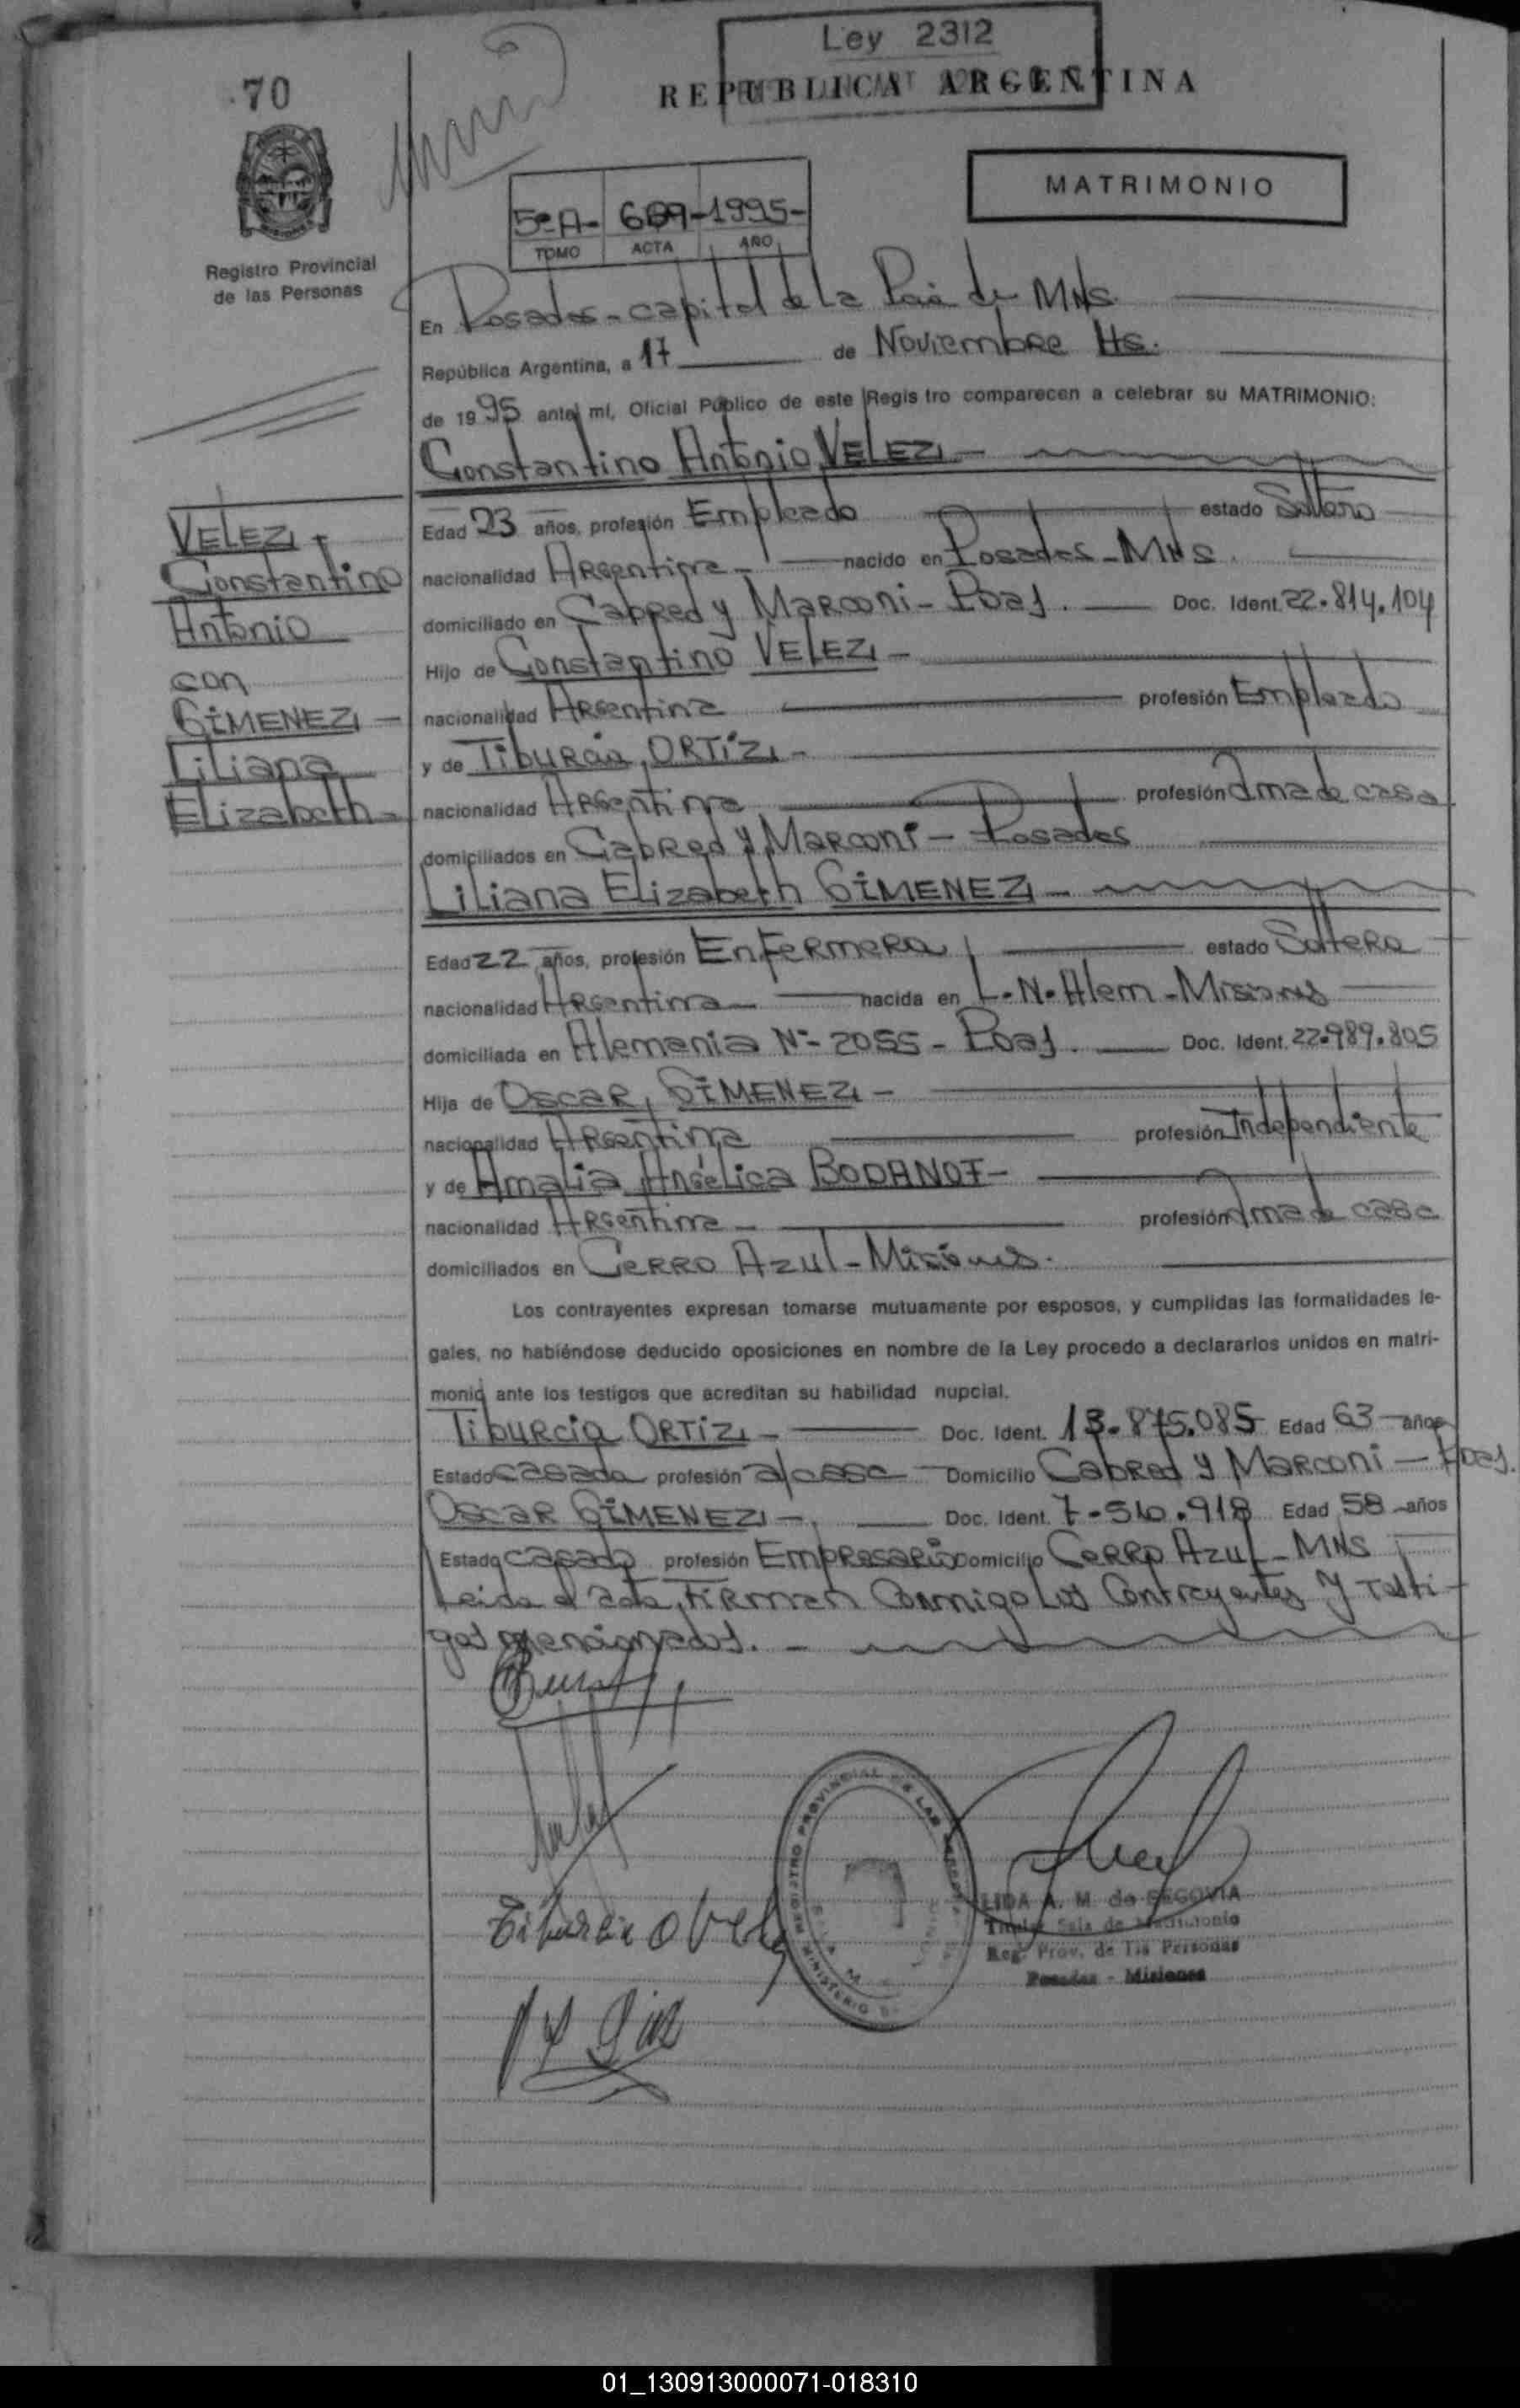 Ley 2312
70
REPUBLICA ARGENTINA
MATRIMONIO
5º A- 609-1995-
TOMO ACTA AÑO
Registro Provincial
de las Personas
En Posadas - capital de la Pcia de MNS.
República Argentina, a 17 de Noviembre Hs.
de 1995 ante mí, Oficial Público de este Registro comparecen a celebrar su MATRIMONIO:
Constantino Antonio VELEZ -
VELEZ -
Constantino
Antonio
con
GIMENEZ -
Liliana
Elizabeth -
Edad 23 años, profesión Empleado estado Soltero
nacionalidad Argentina - nacido en Posadas - MNS.
domiciliado en Cabred y Marconi - Pdas. Doc. Ident. 22.814.104
Hijo de Constantino VELEZ -
nacionalidad Argentina profesión Empleado
y de Tiburcia ORTIZ -
nacionalidad Argentina profesión Ama de casa
domiciliados en Cabred y Marconi - Posadas
Liliana Elizabeth GIMENEZ -
Edad 22 años, profesión Enfermera estado Soltera
nacionalidad Argentina - nacida en L.N. Alem - Misiones
domiciliada en Alemania Nº 2055 - Pdas. Doc. Ident. 22.989.805
Hija de Oscar, GIMENEZ -
nacionalidad Argentina profesión Independiente
y de Amalia Angélica BODANOF -
nacionalidad Argentina - profesión Ama de casa
domiciliados en Cerro Azul - Misiones.
Los contrayentes expresan tomarse mutuamente por esposos, y cumplidas las formalidades le-
gales, no habiéndose deducido oposiciones en nombre de la Ley procedo a declararlos unidos en matri-
monio ante los testigos que acreditan su habilidad nupcial.
Tiburcia ORTIZ - Doc. Ident. 13.875.085 Edad 63 años
Estado casada profesión a/casa Domicilio Cabred y Marconi - Pdas.
Oscar GIMENEZ - Doc. Ident. 7.510.918 Edad 58 años
Estado casado profesión Empresario Domicilio Cerro Azul - MNS
Leida el acta, Firman Conmigo Los Contrayentes y Testi-
gos mencionados. -
Tiburcia O Velez
REGISTRO PROVINCIAL DE LAS
MINISTERIO
LIDA A. M. de SEGOVIA
Titular Sala de Matrimonio
Reg. Prov. de las Personas
Posadas - Misiones
01_130913000071-018310